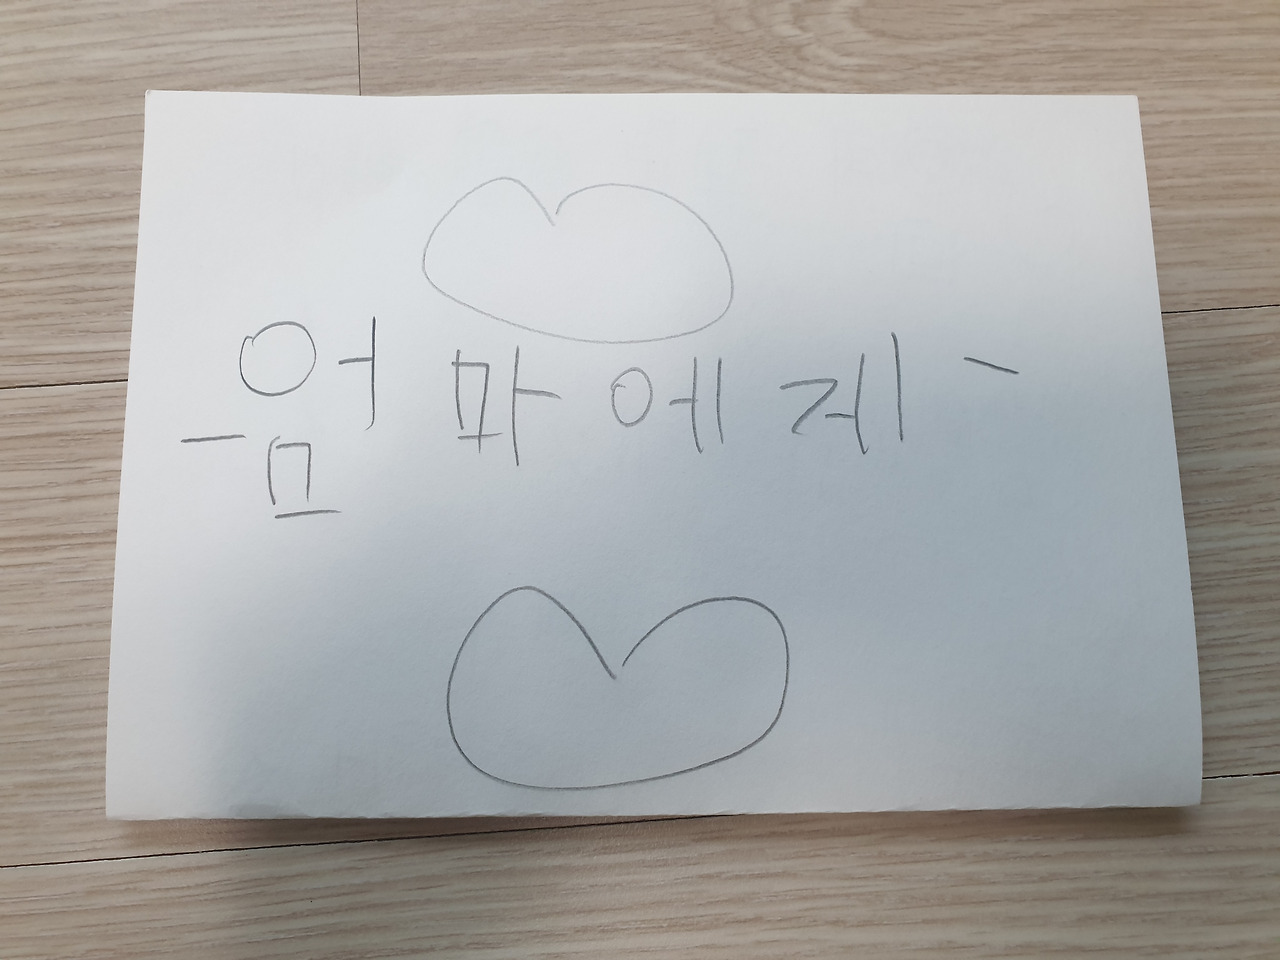 - 엄마에게 -